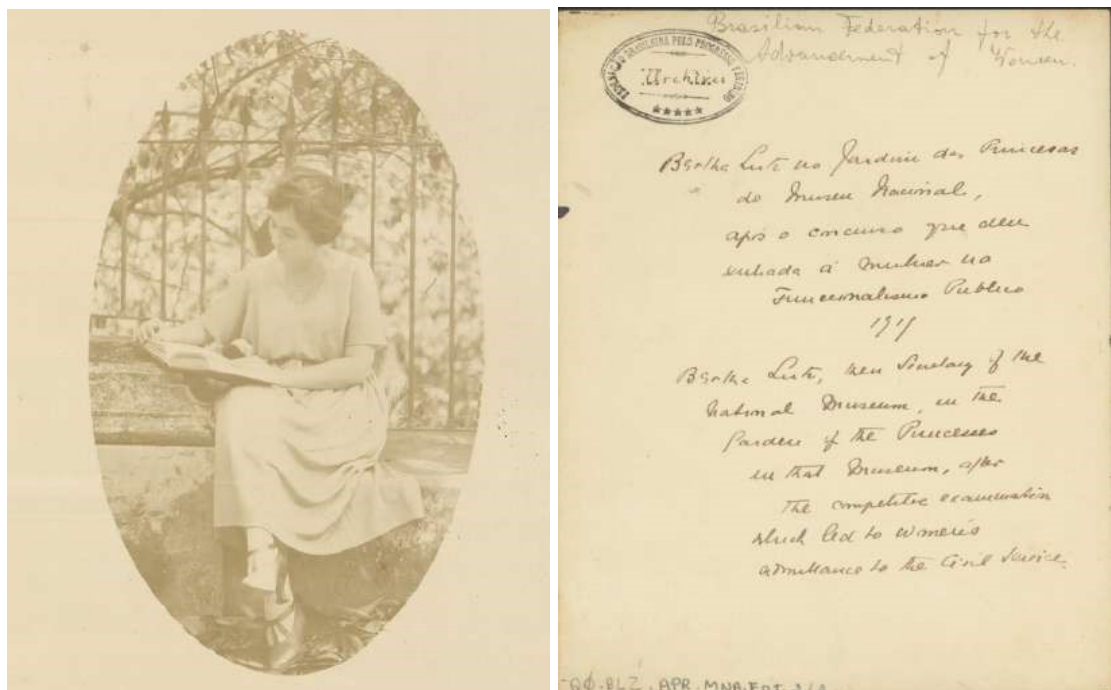 Brasilian Federation for the
Advancement of Women.
FEDERAÇÃO BRASILEIRA PELO PROGRESSO FEMININO
Archivo
Bertha Lutz no Jardim das Princesas
do Museu Nacional,
após o concurso que deu
entrada á mulher no
Funccionalismo Publico
1919
Bertha Lutz, then Secretary of the
National Museum, in the
Garden of the Princesses
in that Museum, after
the competitive examination
which led to women's
admittance to the Civil Service.
BLZ. APR. MNA. FOT.